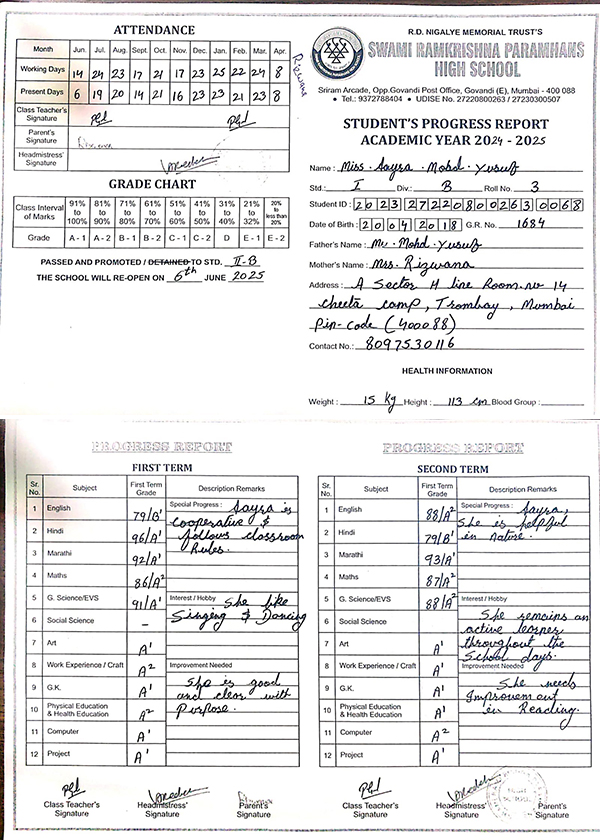 ATTENDANCE
Month Jun. Jul. Aug. Sept. Oct. Nov. Dec. Jan. Feb. Mar. Apr.
Working Days 14 24 23 17 21 17 23 25 22 24 8
Present Days 6 19 20 14 21 16 23 23 21 23 8
Class Teacher's Signature
Parent's Signature Rizwana
Headmistress' Signature
Rizwana
GRADE CHART
Class Interval of Marks 91% to 100% 81% to 90% 71% to 80% 61% to 70% 51% to 60% 41% to 50% 31% to 40% 21% to 32% 20% to less than 20%
Grade A - 1 A - 2 B - 1 B - 2 C - 1 C - 2 D E - 1 E - 2
PASSED AND PROMOTED / DETAINED TO STD. II-B
THE SCHOOL WILL RE-OPEN ON 6th JUNE 2025
R.D. NIGALYE MEMORIAL TRUST'S
SWAMI RAMKRISHNA PARAMHANS
HIGH SCHOOL
Sriram Arcade, Opp.Govandi Post Office, Govandi (E), Mumbai - 400 088
• Tel.: 9372788404 • UDISE No. 27220800263 / 27230300507
STUDENT'S PROGRESS REPORT
ACADEMIC YEAR 2024 - 2025
Name : Miss. Sayra. Mohd. Yusuf
Std.: I Div.: B Roll No. 3
Student ID : 2023272208002630068
Date of Birth : 20042018 G.R. No. 1684
Father's Name : Mr. Mohd. Yusuf
Mother's Name : Mrs. Rizwana
Address : A Sector H line Room.no 14
cheeta camp, Trombay, Mumbai
Pin-code (400088)
Contact No.: 8097530116
HEALTH INFORMATION
Weight : 15 kg Height : 113 cm Blood Group :
PROGRESS REPORT
FIRST TERM
Sr. No. Subject First Term Grade Description Remarks
1 English 79/B1 Special Progress : Sayra is
cooperative &
2 Hindi 96/A1 follows classroom
Rules.
3 Marathi 92/A1
4 Maths 86/A2
5 G. Science/EVS 91/A1 Interest / Hobby She like
6 Social Science - Singing & Dancing
7 Art A1
8 Work Experience / Craft A2 Improvement Needed
9 G.K. A1 She is good
and clear with
10 Physical Education & Health Education A2 Purpose.
11 Computer A1
12 Project A1
Class Teacher's Signature Headmistress' Signature Parent's Signature
PROGRESS REPORT
SECOND TERM
Sr. No. Subject First Term Grade Description Remarks
1 English 88/A2 Special Progress : Sayra,
She is helpful
2 Hindi 79/B1 in nature.
3 Marathi 93/A1
4 Maths 87/A2
5 G. Science/EVS 88/A2 Interest / Hobby
6 Social Science She remains an
active lerner
7 Art A1 throughout the
School days.
8 Work Experience / Craft A1 Improvement Needed
9 G.K. A1 She needs
Improvement
10 Physical Education & Health Education A1 in Reading.
11 Computer A2
12 Project A1
Class Teacher's Signature Headmistress' Signature Parent's Signature